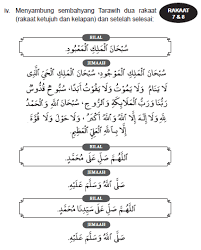 iv. Menyambung sembahyang Tarawih dua rakaat
(rakaat ketujuh dan kelapan) dan setelah selesai:
RAKAAT
7 & 8
BILAL
سُبْحَانَ الْمَلِكِ الْمَعْبُودِ.
JEMAAH
سُبْحَانَ الْمَلِكِ الْمَوْجُودِ، سُبْحَانَ الْمَلِكِ الْحَيِّ الَّذِي
لَا يَنَامُ وَلَا يَمُوتُ وَلَا يَفُوتُ أَبَدًا، سُبُّوحٌ قُدُّوسٌ
رَبُّنَا وَرَبُّ الْمَلَائِكَةِ وَالرُّوحِ، سُبْحَانَ اللهِ وَالْحَمْدُ
لِلهِ وَلَا إِلَهَ إِلَّا اللهُ وَاللهُ أَكْبَرُ، وَلَا حَوْلَ وَلَا قُوَّةَ
إِلَّا بِاللهِ الْعَلِيِّ الْعَظِيمِ
BILAL
اَللَّهُمَّ صَلِّ عَلَى مُحَمَّدٍ.
JEMAAH
صَلَّى اللهُ وَسَلَّمَ عَلَيْهِ.
BILAL
اَللَّهُمَّ صَلِّ عَلَى سَيِّدِنَا مُحَمَّدٍ
JEMAAH
صَلَّى اللهُ وَسَلَّمَ عَلَيْهِ.